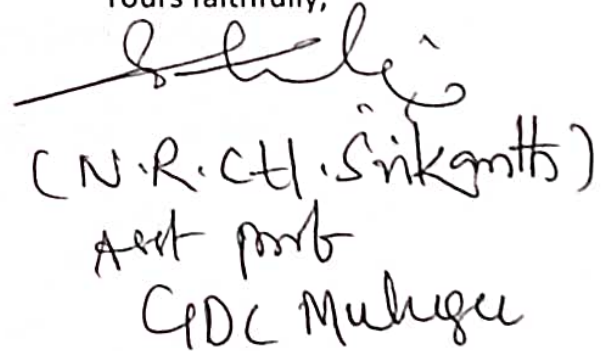 Yours faithfully,
(N.R.CH.Srikanth)
Asst prof
GDC Mulugu